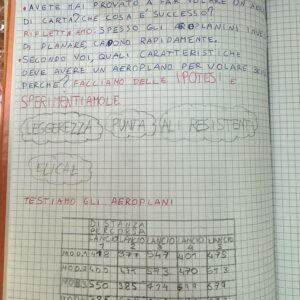 • AVETE MAI PROVATO A FAR VOLARE UN AE
DI CARTA? CHE COSA E' SUCCESSO?
RIFLETTIAMO: SPESSO GLI AEROPLANINI INVE
DI PLANARE, CADONO RAPIDAMENTE.
• SECONDO VOI, QUALI CARATTERISTICHE
DEVE AVERE UN AEROPLANO PER VOLARE
PERCHE'? FACCIAMO DELLE IPOTESI E
SPERIMENTIAMOLE
LEGGEREZZA PUNTA ALI RESISTENTI
ELICHE
TESTIAMO GLI AEROPLANI
DISTANZA
PERCORSA
LANCIO LANCIO LANCIO LANCIO LANCIO
1 2 3 4 5
MOD.1 418 377 547 401 475
MOD.2 400 543
550 385